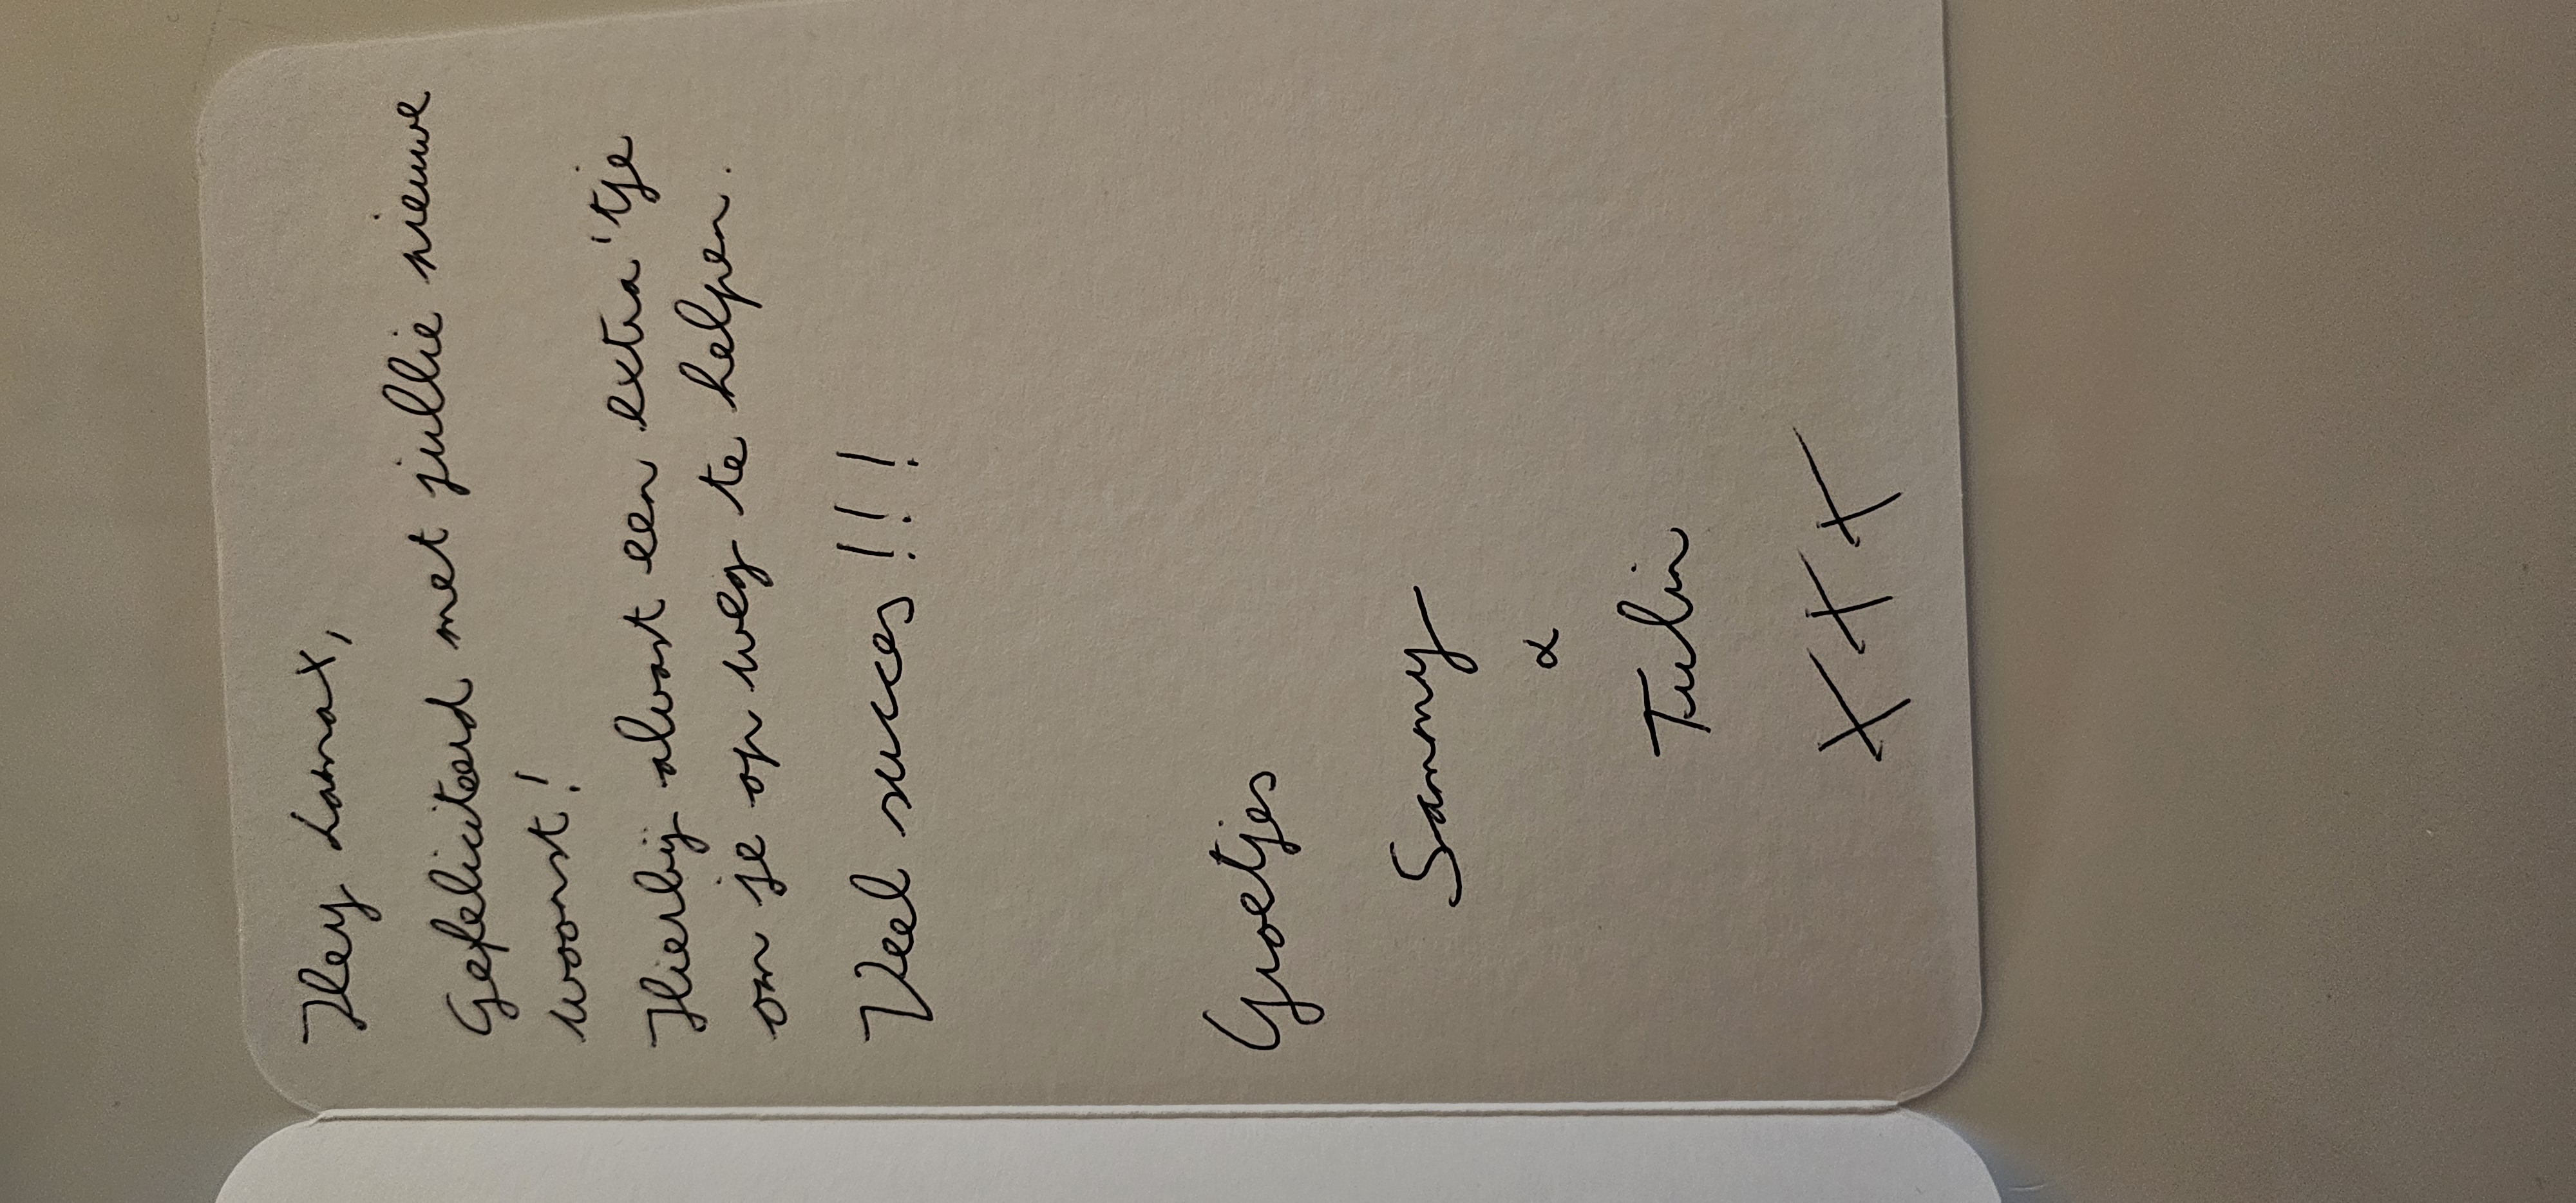 Hey Lamax,
Gefeliciteerd met jullie nieuwe
woonst!
Hierbij alvast een extra'tje
om je op weg te helpen.
Veel succes!!!
Groetjes
Sammy
&
Tulin
XXX